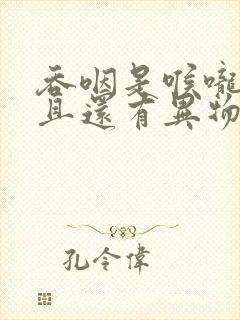 吞咽是喉嚨
且還有異物
孔令偉